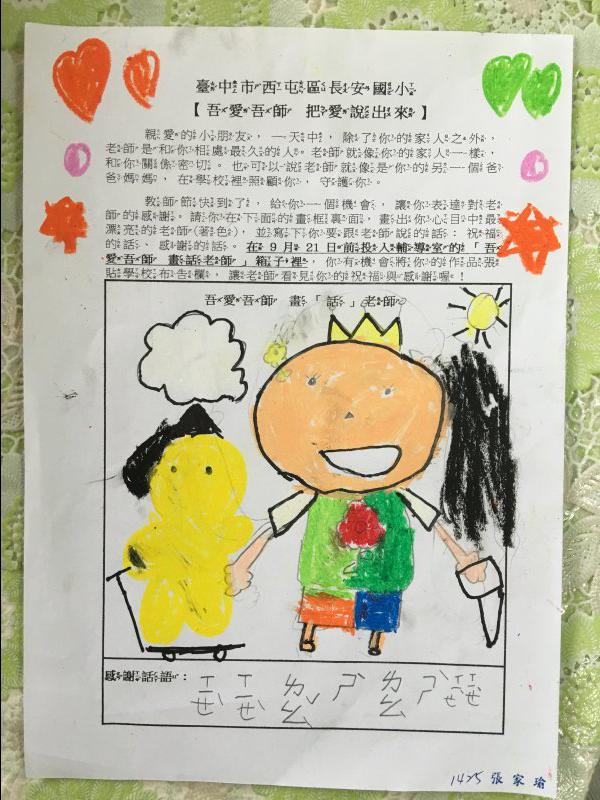 臺中市西屯區長安國小
【吾愛吾師 把愛說出來】
親愛的小朋友，一天中，除了你的家人之外，
老師是和你相處最久的人。老師就像你的家人一樣，
和你關係密切。也可以說老師就像是你的另一個爸
爸媽媽，在學校裡照顧你，守護你。
教師節快到了，給你一個機會，讓你表達對老
師的感謝。請你在下面的畫框裏面，畫出你心目中最
漂亮的老師(著色)，並寫下你要跟老師說的話：祝福
的話、感謝的話。在9月21日前投入輔導室的「吾
愛吾師 畫話老師」箱子裡，你有機會將你的作品張
貼學校布告欄，讓老師看見你的祝福與感謝喔！
吾愛吾師 畫「話」老師
感謝話語：ㄒㄧㄝ ㄒㄧㄝ ㄌㄠˇ ㄕ ㄌㄠ ㄕ ㄒㄧㄝ ㄒㄧㄝ
1425 張家瑜